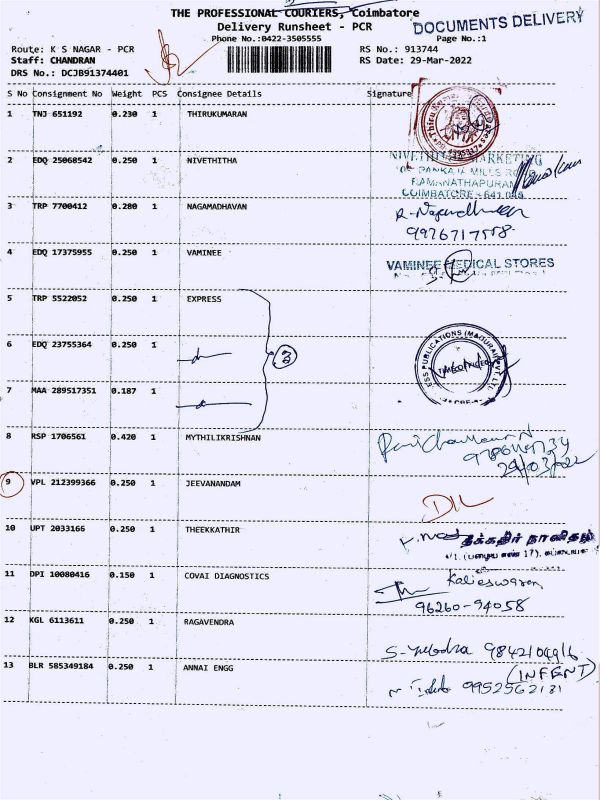 THE PROFESSIONAL COURIERS, Coimbatore
DOCUMENTS DELIVERY
Delivery Runsheet - PCR
Phone No.:0422-3505555
Page No.:1
Route: K S NAGAR - PCR
RS No.: 913744
Staff: CHANDRAN
RS Date: 29-Mar-2022
DRS No.: DCJB91374401
S No Consignment No Weight PCS Consignee Details Signature
1 TNJ 651192 0.230 1 THIRUKUMARAN
2 EDQ 25068542 0.250 1 NIVETHITHA
NIVETHITHA MARKETING
PANKAJA MILLS ROAD
RAMANATHAPURAM
COIMBATORE - 641 045
3 TRP 7700412 0.280 1 NAGAMADHAVAN
4 EDQ 17375955 0.250 1 VAMINEE
VAMINEE MEDICAL STORES
5 TRP 5522052 0.250 1 EXPRESS
6 EDQ 23755364 0.250 1
3
ESS PUBLICATIONS (MADURAI) PVT LTD
7 MAA 289517351 0.187 1
8 RSP 1706561 0.420 1 MYTHILIKRISHNAN
29/03/22
9 VPL 212399366 0.250 1 JEEVANANDAM
DIL
10 UPT 2033166 0.250 1 THEEKKATHIR
தீக்கதிர் நாளிதழ்
11 DPI 10080416 0.150 1 COVAI DIAGNOSTICS
Kalieswaran
96260-94058
12 KGL 6113611 0.250 1 RAGAVENDRA
9842104916
13 BLR 585349184 0.250 1 ANNAI ENGG
(INFENT)
9952562131